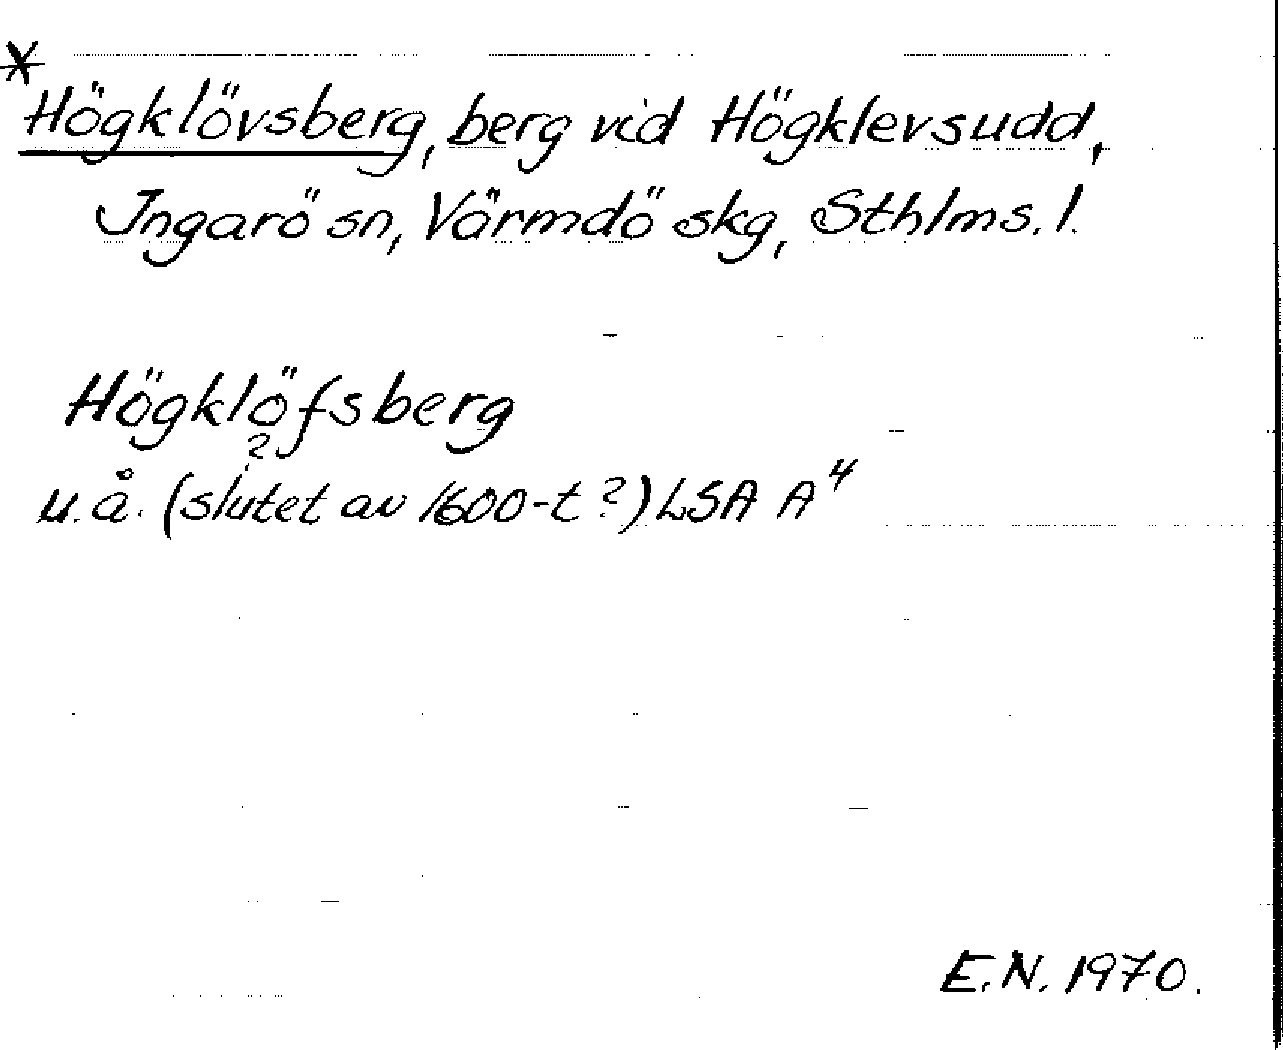 *
Högklövsberg, berg vid Högklevsudd,
Ingarö sn, Värmdö skg, Sthlms. l.
Högklöfsberg
?
u.å. (slutet av 1600-t?) LSA A⁴
E.N. 1970.